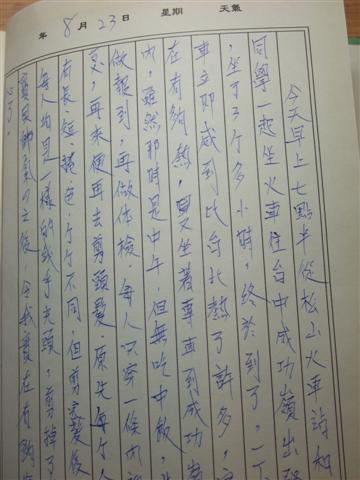 年 8月23日 星期 天氣
今天早上七點半從松山火車站和
同學一起坐火車往台中成功嶺出發
,坐了3个多小時,終於到了,一下
車立即感到比台北熱了許多,實
在有夠熱,又坐著專車到成功
內,雖然那時是中午,但無吃中飯,
做報到,再做体檢,每人只穿一條內
,再來便再去剪頭髮.原先每个人
有長短.諸色.个个不同,但剪完髮後
每人均是一樣的 頭,剪掉了
寶貝帥氣 之後,令我實在有夠